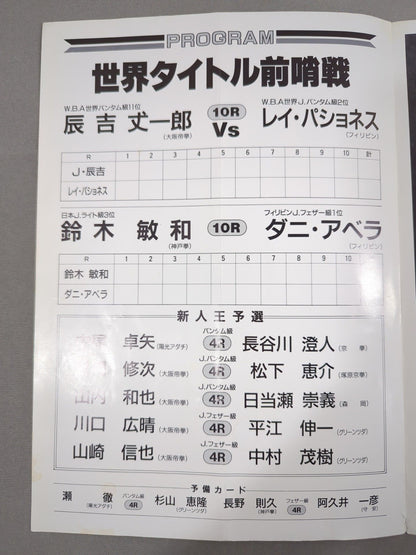 PROGRAM
世界タイトル前哨戦
W.B.A世界バンタム級11位 W.B.A世界J.バンタム級2位
辰吉 丈一郎 10R Vs レイ・パショネス
(大阪帝拳) (フィリピン)
R 1 2 3 4 5 6 7 8 9 10 計
J・辰吉
レイ・パショネス
日本J.ライト級3位 フィリピンJ.フェザー級1位
鈴木 敏和 10R ダニ・アベラ
(神戸拳) (フィリピン)
R 1 2 3 4 5 6 7 8 9 10 計
鈴木 敏和
ダニ・アベラ
新人王予選
卓矢(陽光アダチ) バンタム級 4R 長谷川 澄人(京拳)
修次(大阪帝拳) J.バンタム級 4R 松下 恵介(塚原京拳)
山内 和也(大阪帝拳) J.バンタム級 4R 日当瀬 崇義(森岡)
川口 広晴(大阪帝拳) J.フェザー級 4R 平江 伸一(グリーンツダ)
山崎 信也(大阪帝拳) J.フェザー級 4R 中村 茂樹(グリーンツダ)
予備カード
瀬 徹(陽光アダチ) バンタム級 4R 杉山 恵隆(グリーンツダ) 長野 則久(神戸拳) フェザー級 4R 阿久井 一彦(守安)